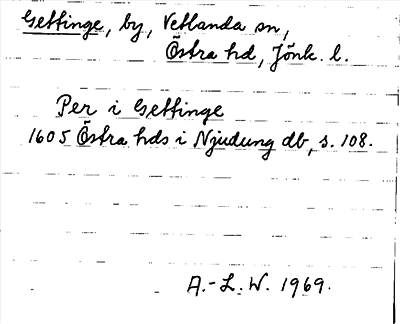 Gettinge, by, Vetlanda sn,
Östra hd, Jönk. l.
Per i Gettinge
1605 Östra hds i Njudung db, s. 108.
A.-L. W. 1969.